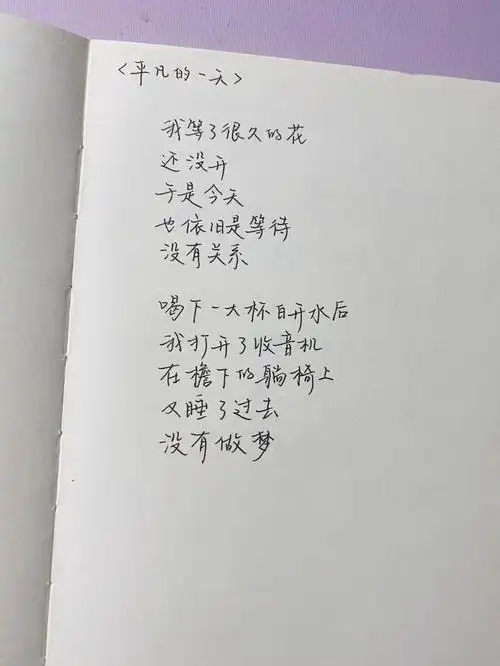 <平凡的一天>
我等了很久的花
还没开
于是今天
也依旧是等待
没有关系
喝下一大杯白开水后
我打开了收音机
在檐下的躺椅上
又睡了过去
没有做梦